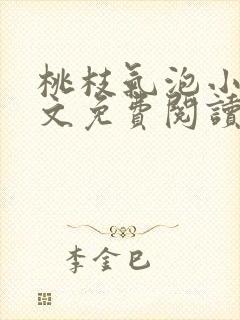 桃枝氣泡小
文免費閱讀
李金巳